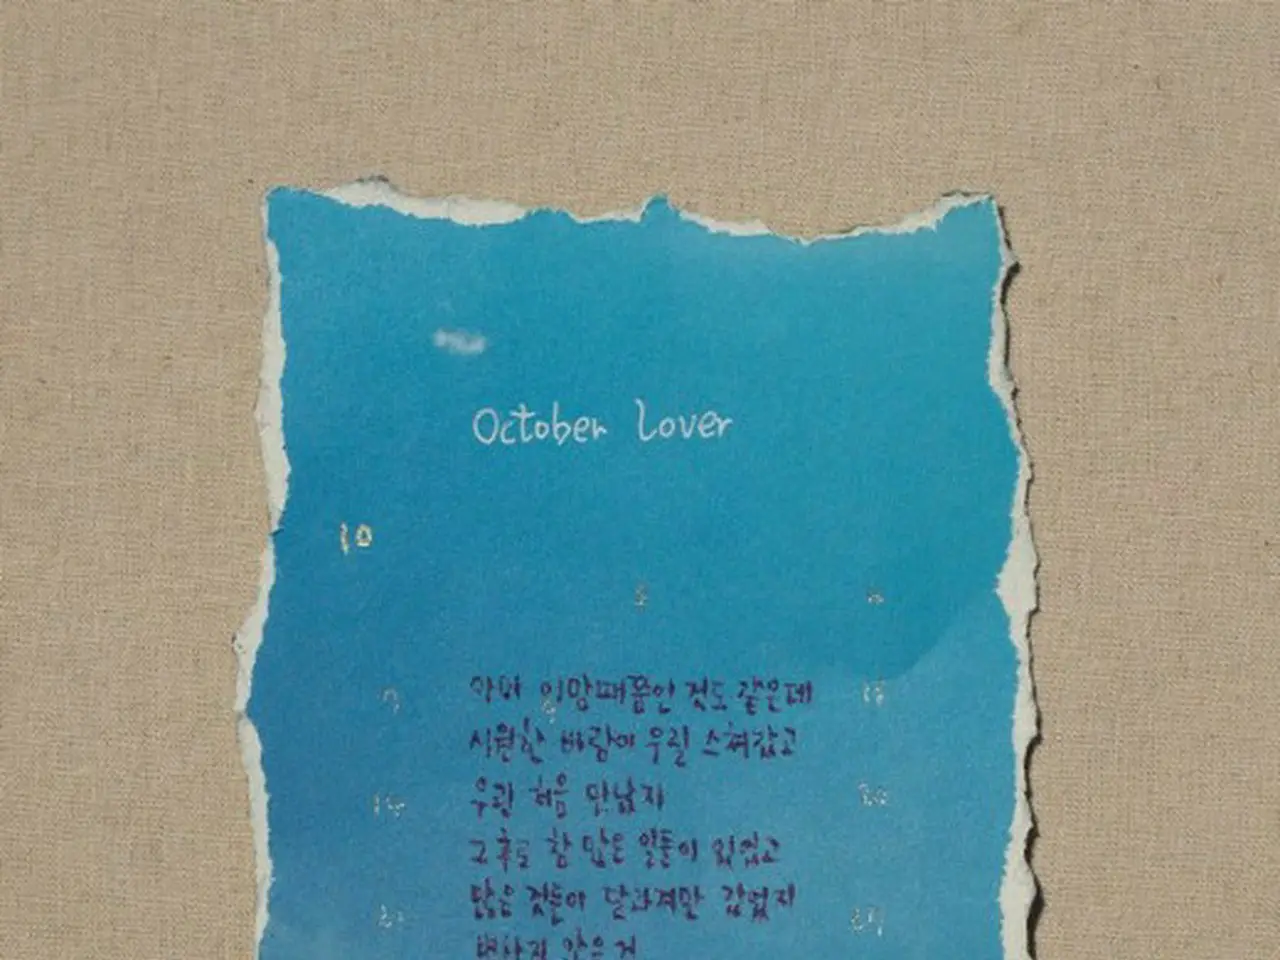 October Lover
10
아마 이맘때쯤인 것도 같은데
시원한 바람이 우릴 스쳐갔고
우린 처음 만났지
그 후로 참 많은 일들이 있었고
많은 것들이 달라져만 갔었지
변하지 않은 건